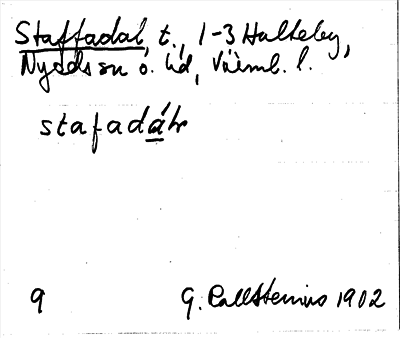 Staffadal, t., 1-3 Halteby,
Nyeds sn o. hd, Värml. l.
stafadáɫr
9 G. Kallstenius 1902